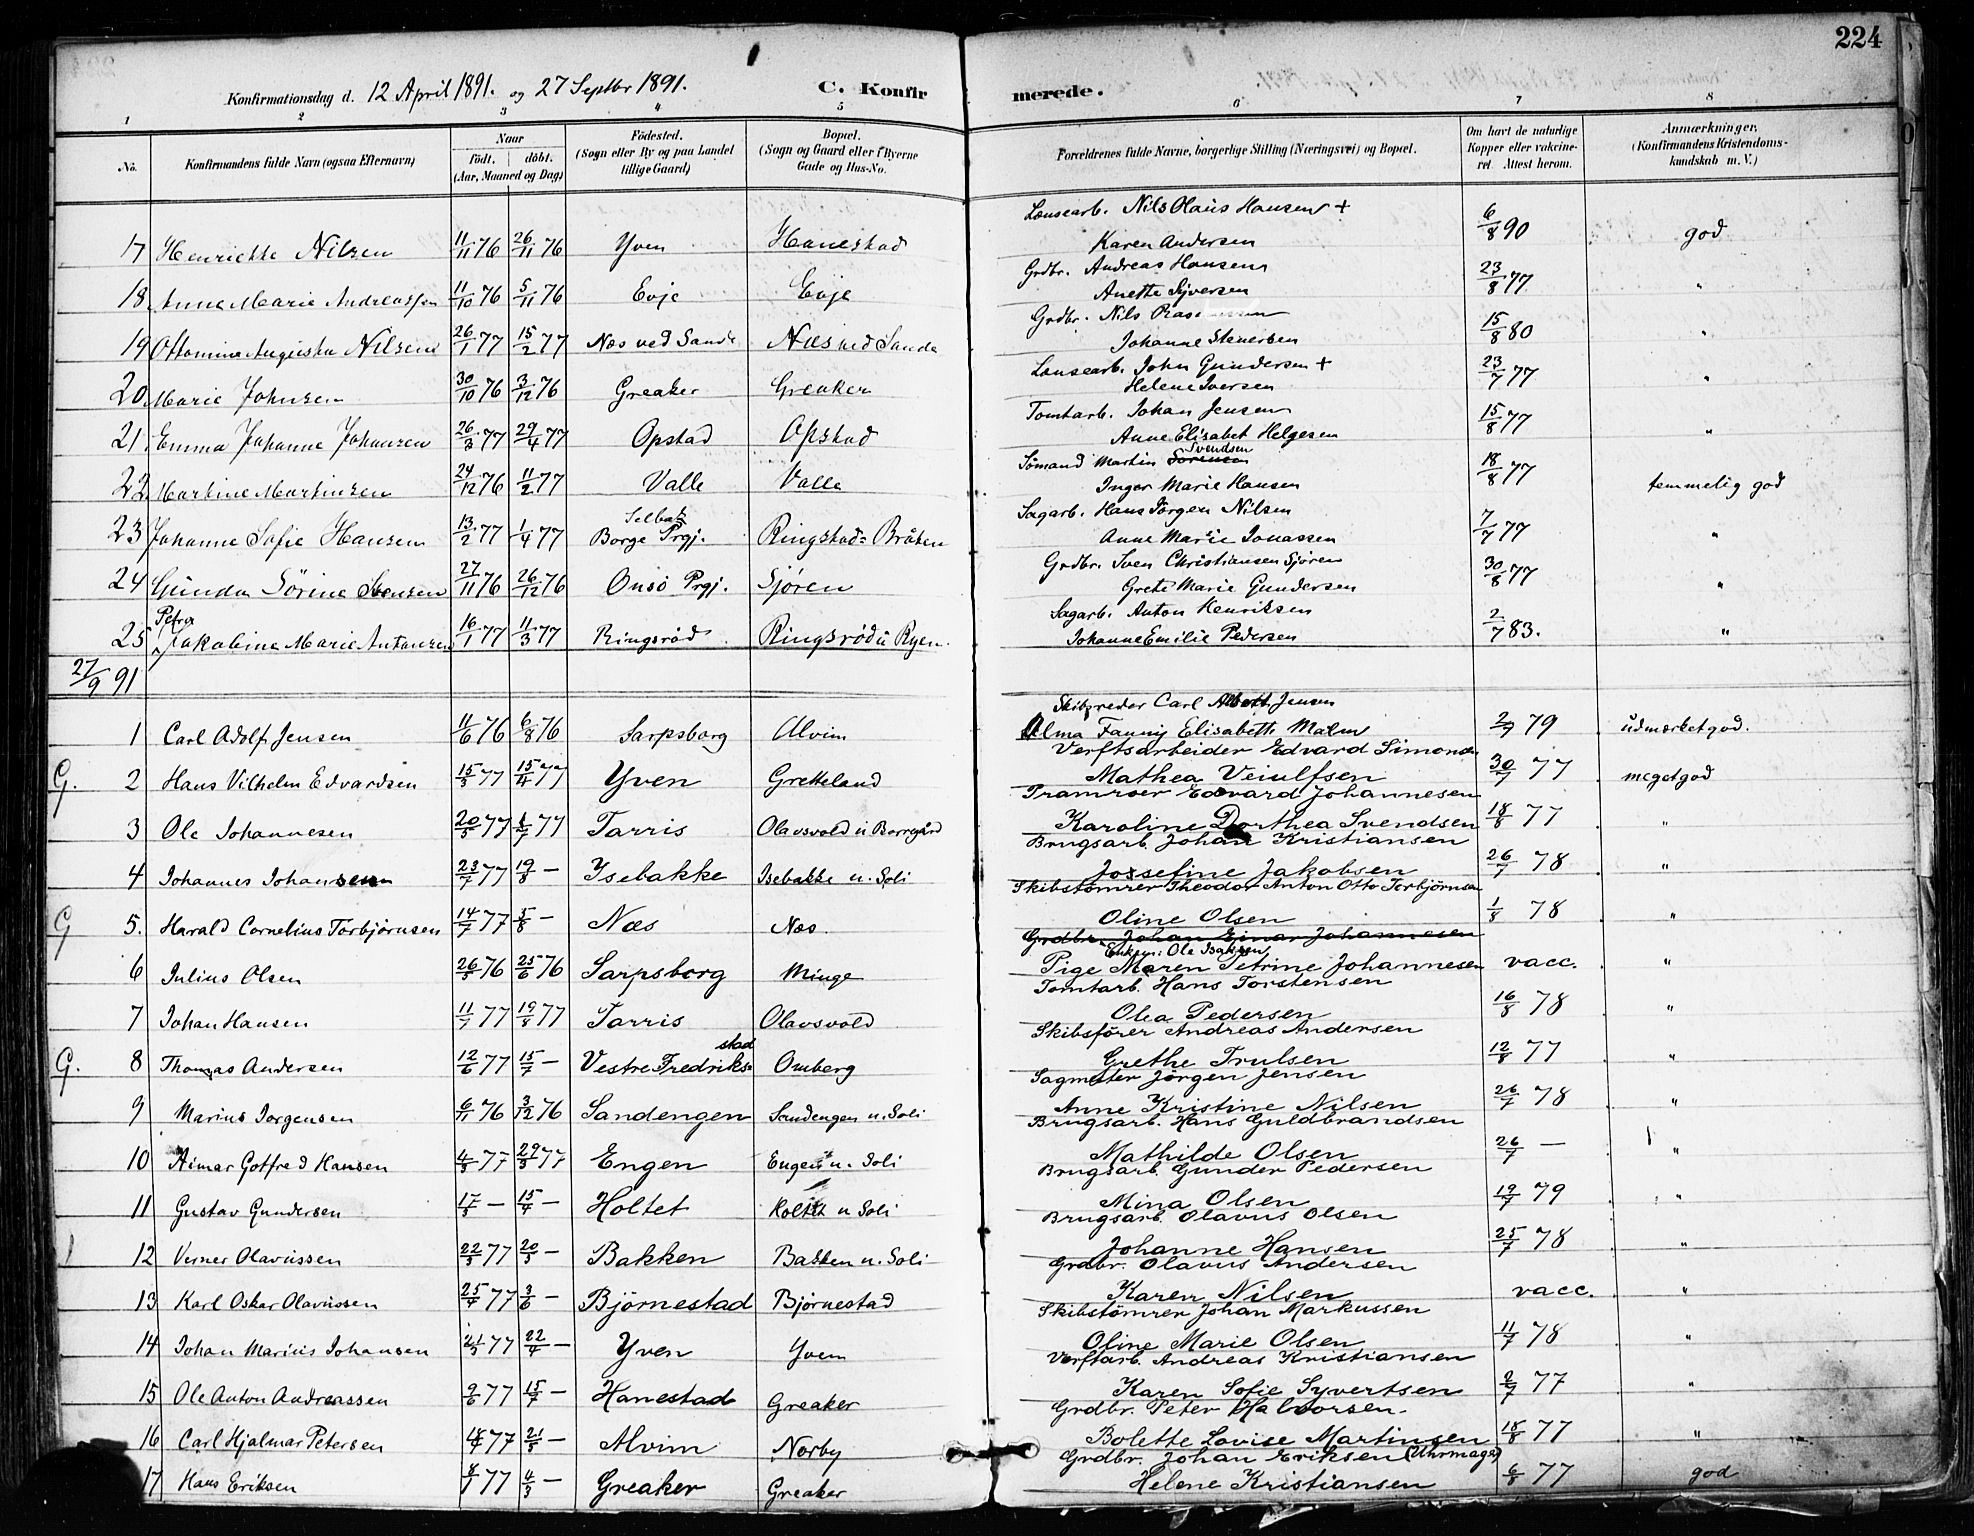 224
Konfirmationsdag d. 12 April 1891. og 27 Septbr 1891. C. Konfirmerede.
1 2 3 4 5 6 7 8
No. Konfirmandens fulde Navn (ogsaa Efternavn) Naar født. døbt. (Aar, Maaned og Dag) Födested. (Sogn eller By og paa Landet tillige Gaard) Bopæl. (Sogn og Gaard eller i Byerne Gade og Hus-No. Forældrenes fulde Navne, borgerlige Stilling (Næringsvei) og Bopæl. Om havt de naturlige Kopper eller vaccineret. Attest herom. Anmærkninger. (Konfirmandens Kristendomskundskab m. V.)
Lænsearb. Nils Olaüs Hansen +
17 Henriette Nilsen 11/11 76 26/11 76 Yven Hanestad Karen Andersen 6/8 90 god
Grdbr. Andreas Hansen
18 Anna Marie Andreassen 11/10 76 5/11 76 Evje Evje Anette Syversen 23/8 77 "
Grdbr. Nils
19 Ottomine Augusta Nilsen 26/1 77 15/2 77 Næs ved Sande Næs ved Sande Johanne Stenersen 15/8 80 "
Lænsearb. John Gundersen +
20 Marie Johnsen 30/10 76 3/12 76 Greaker Greaker Helene Iversen 23/7 77 "
Tomtarb. Johan Jensen
21. Emma Johanne Johansen 26/3 77 29/4 77 Opstad Opstad Anne Elisabet Helgesen 15/8 77 "
Sömand Martin Sørensen Svendsen
22 Martine Martinsen 24/12 76 11/2 77 Valle Valle Inger Marie Hansen 18/8 77 temmelig god
Sagarb. Hans Jörgen Nilsen
23 Johanne Sofie Hansen 13/2 77 1/4 77 Borge Prgj. Ringstad-Bråten Anne Marie Jonassen 7/7 77 "
Grdbr. Sven Christiansen Sjøren
24 Gunda Sörine Svensen 27/11 76 26/12 76 Onsö Prgj. Sjören Grete Marie Gundersen 30/8 77 "
Sagarb. Anton Henriksen
25 Petra Jakobine Marie Antonsen 16/1 77 11/3 77 Ringsröd Ringsröd u Ryen. Johanne Emilie Pedersen 2/7 83. "
27/9 91
Skibsreder Carl Albert Jensen
1 Carl Adolf Jensen 11/6 76 6/8 76 Sarpsborg Alvim Alma Fanny Elisabeth Malm 2/7 79 udmærketgod.
Verftsarbeider Edvard Simonsen
G. 2 Hans Vilhelm Edvardsen 15/3 77 15/4 77 Yven Gretteland Mathea Veiulfsen 30/7 77 megetgod
Pramroer Edvard Johannesen
3 Ole Johannesen 20/5 77 8/7 77 Tarris Olavsvold u Borregård Karoline Dorthea Svendsen 18/8 77 "
Brugsarb. Johan Kristiansen
4 Johannes Johansen 23/7 77 19/8 — Isebakke Isebakke u. Soli Josefine Jakobsen 26/7 78 "
Skibstömrer Theodor Anton Otto Torbjörnsen
G 5. Harald Cornelius Torbjörnsen 14/7 77 5/8 — Næs Næs. Oline Olsen 1/8 78 "
Grdbr. Johan Einar Johannesen
Enkem: Ole Isaksen
6 Julius Olsen 26/5 76 25/6 76 Sarpsborg Minge Pige Maren Petrine Johannesen vacc. "
Tomtarb. Hans Torstensen
7 Johan Hansen 11/7 77 19/8 77 Tarris Olavsvold Olea Pedersen 16/8 78 "
Skibsförer Andreas Andersen
G. 8 Thomas Andersen 12/6 77 15/7 — Vestre Fredriksstad Omberg Grethe Trulsen 12/8 77 "
Sagmester Jörgen Jensen
9 Marius Jorgensen 6/11 76 3/12 76 Sandengen Sandengen u. Soli Anne Kristine Nilsen 26/7 78 "
Brugsarb. Hans Guldbrandsen
10 Aimar Gotfred Hansen 4/3 77 29/3 77 Engen Engen u. Soli Mathilde Olsen 26/7 — "
Brugsarb. Gunder Pedersen
11 Gustav Gundersen 17/3 — 15/4 — Holtet Holtet u Soli Mina Olsen 19/7 79 "
Brugsarb. Olavus Olsen
12 Verner Olavussen 22/3 77 20/5 — Bakken Bakken u. Soli Johanne Hansen 25/7 78 "
Grdbr. Olavus Andersen
13 Karl Oskar Olavussen 25/4 77 3/6 — Björnestad Björnestad Karen Nilsen vacc. "
Skibstömrer Johan Markussen
14 Johan Marius Johansen 21/3 77 22/4 — Yven Yven Oline Marie Olsen 11/7 78 "
Verftarb. Andreas Kristiansen
15 Ole Anton Andreassen 9/6 77 15/7 — Hanestad Greaker Karen Sofie Syvertsen 2/7 77 "
Grdbr. Peter Halvorsen.
16 Carl Hjalmar Petersen 18/4 77 21/5 — Alvim Norby Bolette Lovise Martinsen 18/8 77 "
Grdbr. Johan Eriksen (Uhrmager)
17 Hans Eriksen 77 4/3 — Greaker Greaker Helene Kristiansen 6/8 77 god